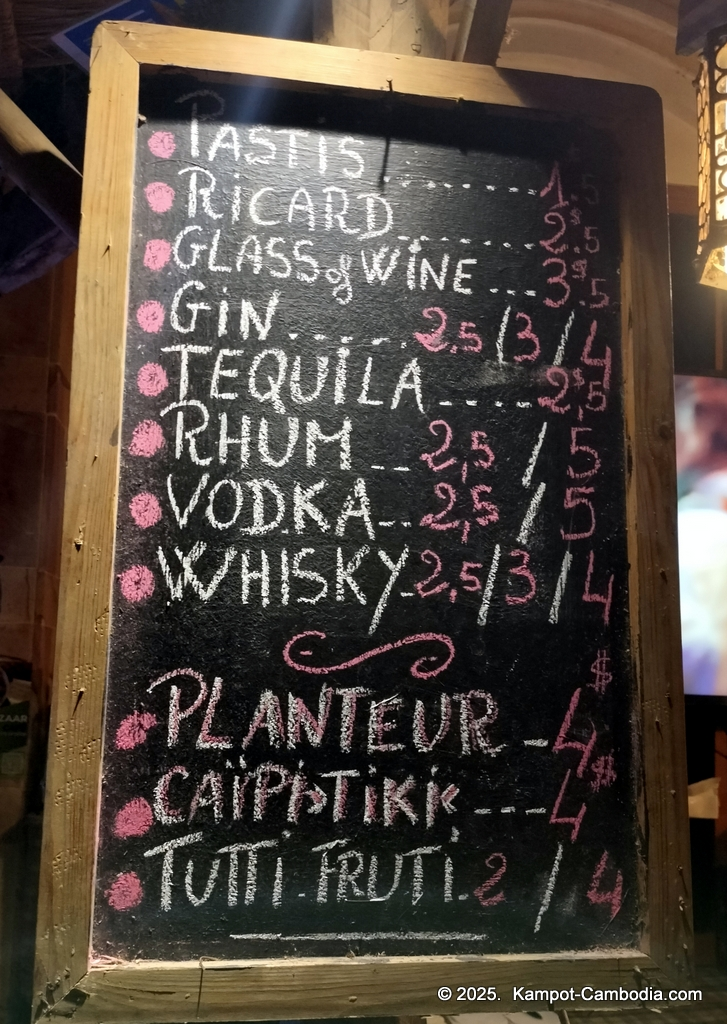 PASTIS ........ 1.5
RiCARD ........ 2$.5
GLASS of WiNE ... 3$.5
GiN ........ 2,5 / 3 / 4
TEQUiLA ..... 2$,5
RHUM -- 2,5 / 5
VODKA -- 2,5 / 5
WHISKY - 2,5 / 3 / 4
PLANTEUR - 4$
CAÏPi>TiKi --- 4$
TUTTi-FRUTi- 2 / 4
ZAAR
© 2025. Kampot-Cambodia.com